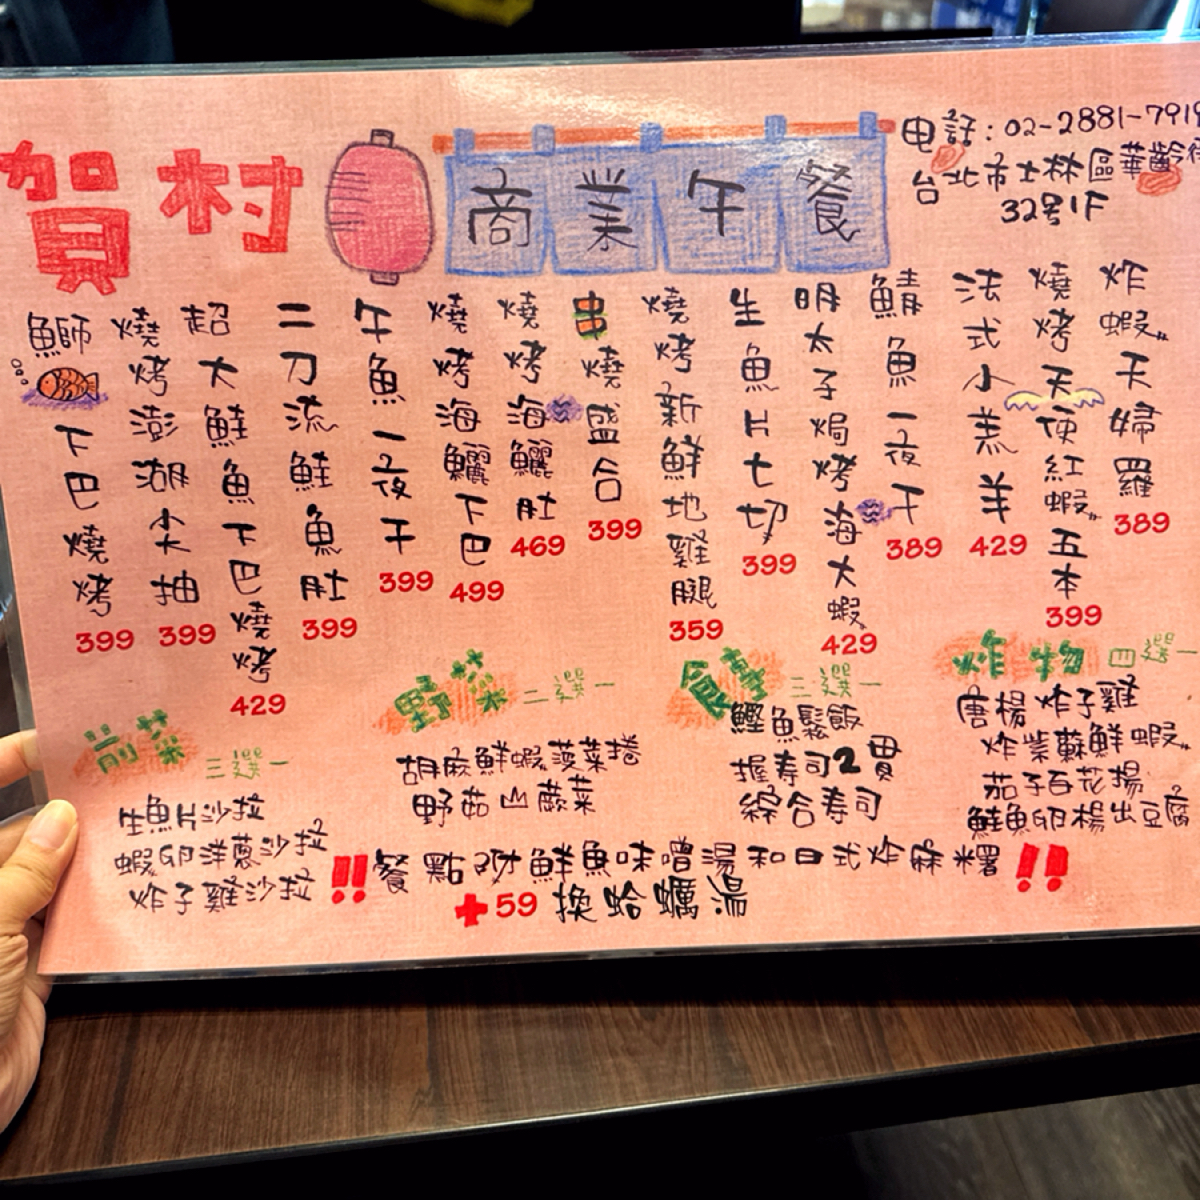 賀村
商業午餐
电話：02-2881-7919
台北市士林區華齡街
32号1F
鰤魚下巴燒烤
399
燒烤澎湖尖抽
399
超大鮭魚下巴燒烤
429
二刀流鮭魚肚
399
午魚一夜干
399
燒烤海鱺下巴
499
燒烤海鱺肚
469
串燒盛合
399
燒烤新鮮地雞腿
359
生魚片七切
399
明太子焗烤海大蝦
429
鯖魚一夜干
389
法式小羔羊
429
燒烤天使紅蝦五本
399
炸蝦天婦羅
389
前菜 三選一
生魚片沙拉
蝦卵洋蔥沙拉
炸子雞沙拉
野菜 二選一
胡麻鮮蝦菠菜捲
野菇山蕨菜
食事 三選一
鰹魚鬆飯
握寿司2貫
綜合寿司
炸物 四選一
唐楊炸子雞
炸紫蘇鮮蝦
茄子百花揚
鮭魚卵楊出豆腐
!!餐點附鮮魚味噌湯和日式炸麻糬!!
+59 換蛤蠣湯